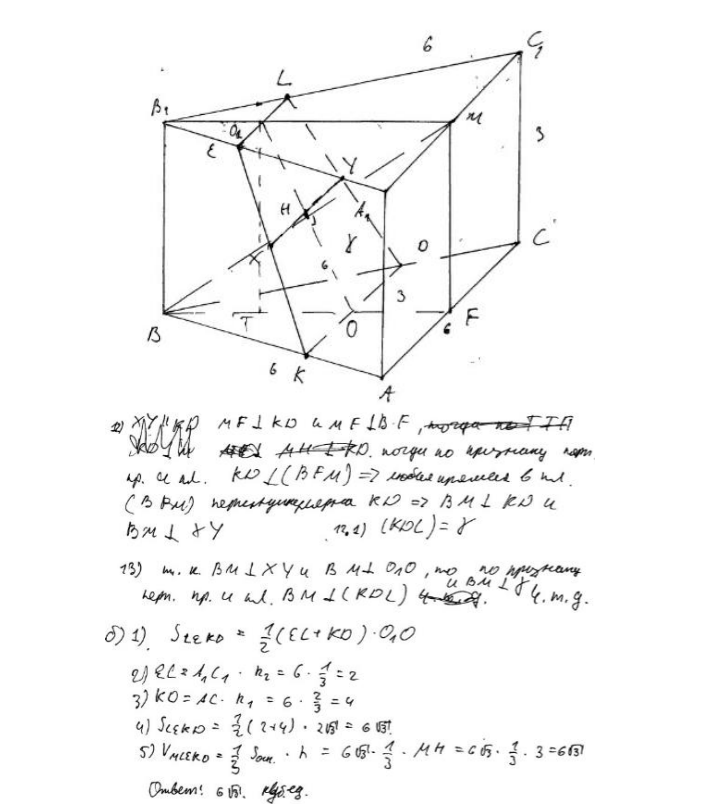 6
C₁
L
B₁
M
O₁
E
3
Y
H
A₁
X
γ
O
C
6
3
B
T
O
6
F
6
K
A
12) MF ⊥ KD и MF ⊥ BF,
тогда по признаку перп.
пр. и пл. KD ⊥ (BFM) => любая прямая в пл.
(BFM) перпендикулярна KD => BM ⊥ KD и
BM ⊥ XY 12.1) (KDL) = γ
13) т.к. BM ⊥ XY и BM ⊥ O₁O, то по признаку
перп. пр. и пл. BM ⊥ (KDL) и BM ⊥ γ ч.т.д.
б) 1) S_LEKD = 1/2 (EL + KD) · O₁O
2) EL = A₁C₁ · k₂ = 6 · 1/3 = 2
3) KD = AC · k₁ = 6 · 2/3 = 4
4) S_LEKD = 1/2 (2+4) · 2√3 = 6√3
5) V_MLEKD = 1/3 Sосн. · h = 6√3 · 1/3 · MH = 6√3 · 1/3 · 3 = 6√3
Ответ: 6√3 куб.ед.